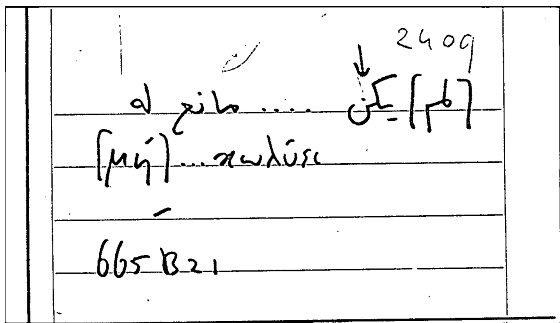 2409
[لم] يكن .... مانع له
[μή] ... κωλύσει
665 B 21